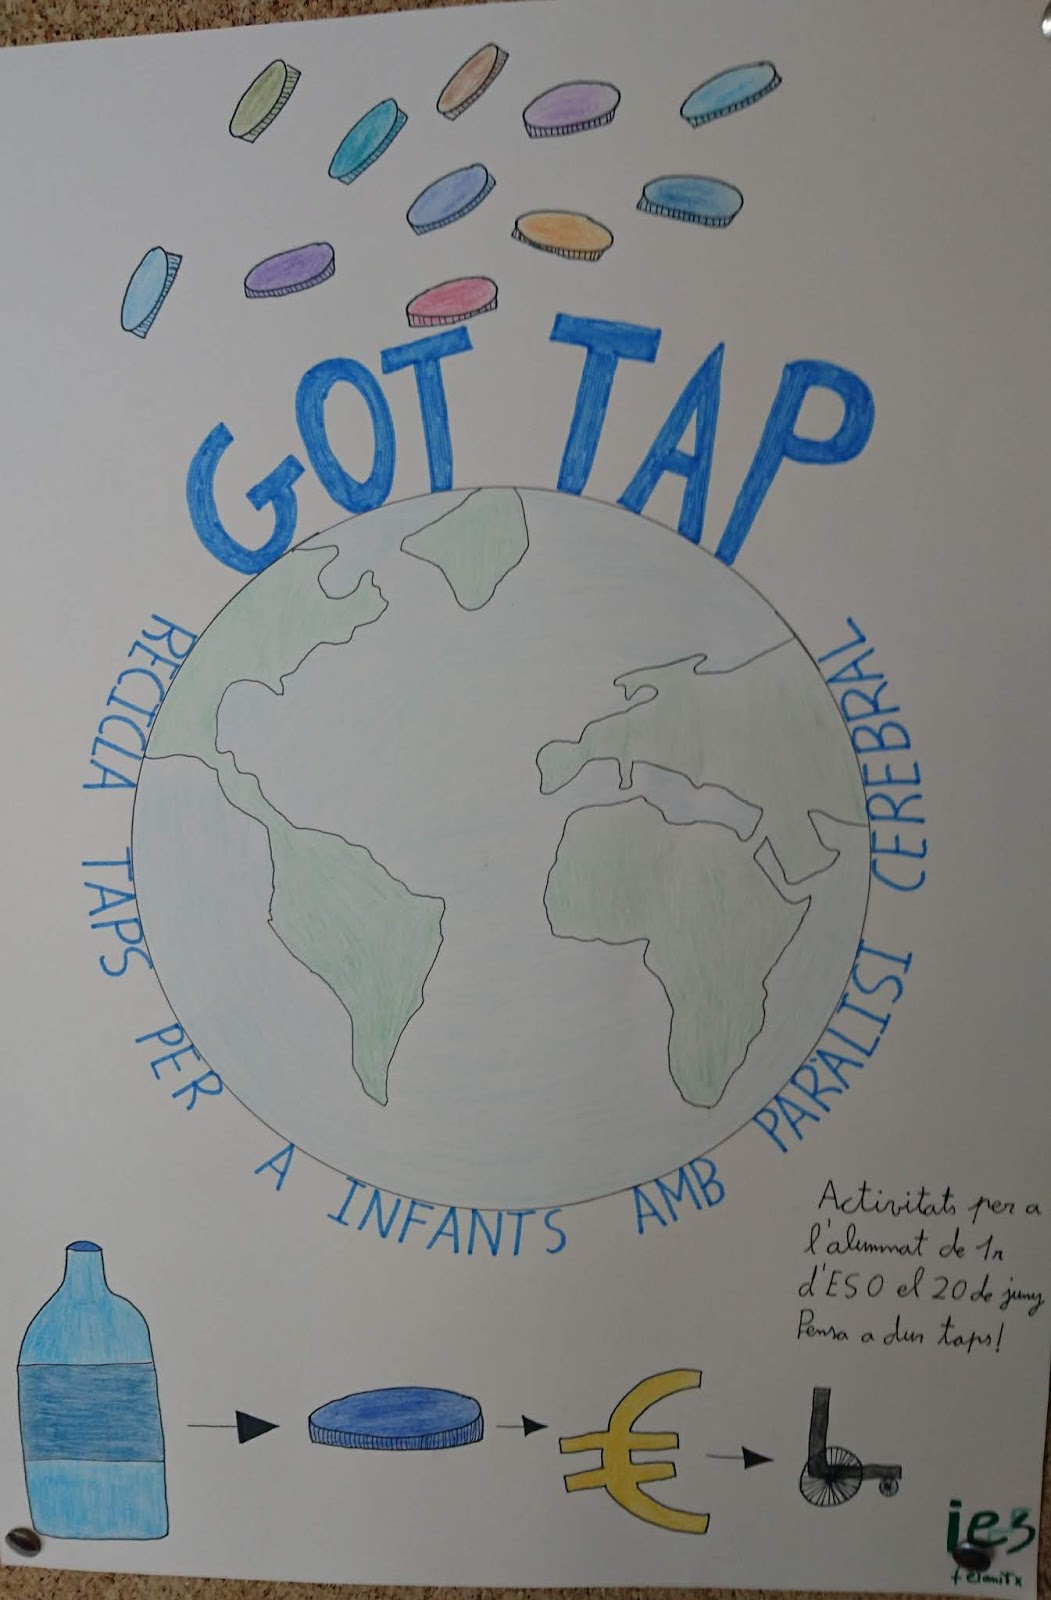 GOT TAP
RECICLA TAPS PER A INFANTS AMB PARÀLISI CEREBRAL
Activitats per a
l'alumnat de 1r
d'ESO el 20 de juny
Pensa a dur taps!
€
ies
felanitx